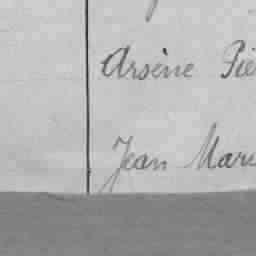 Arsène Pie
Jean Mari